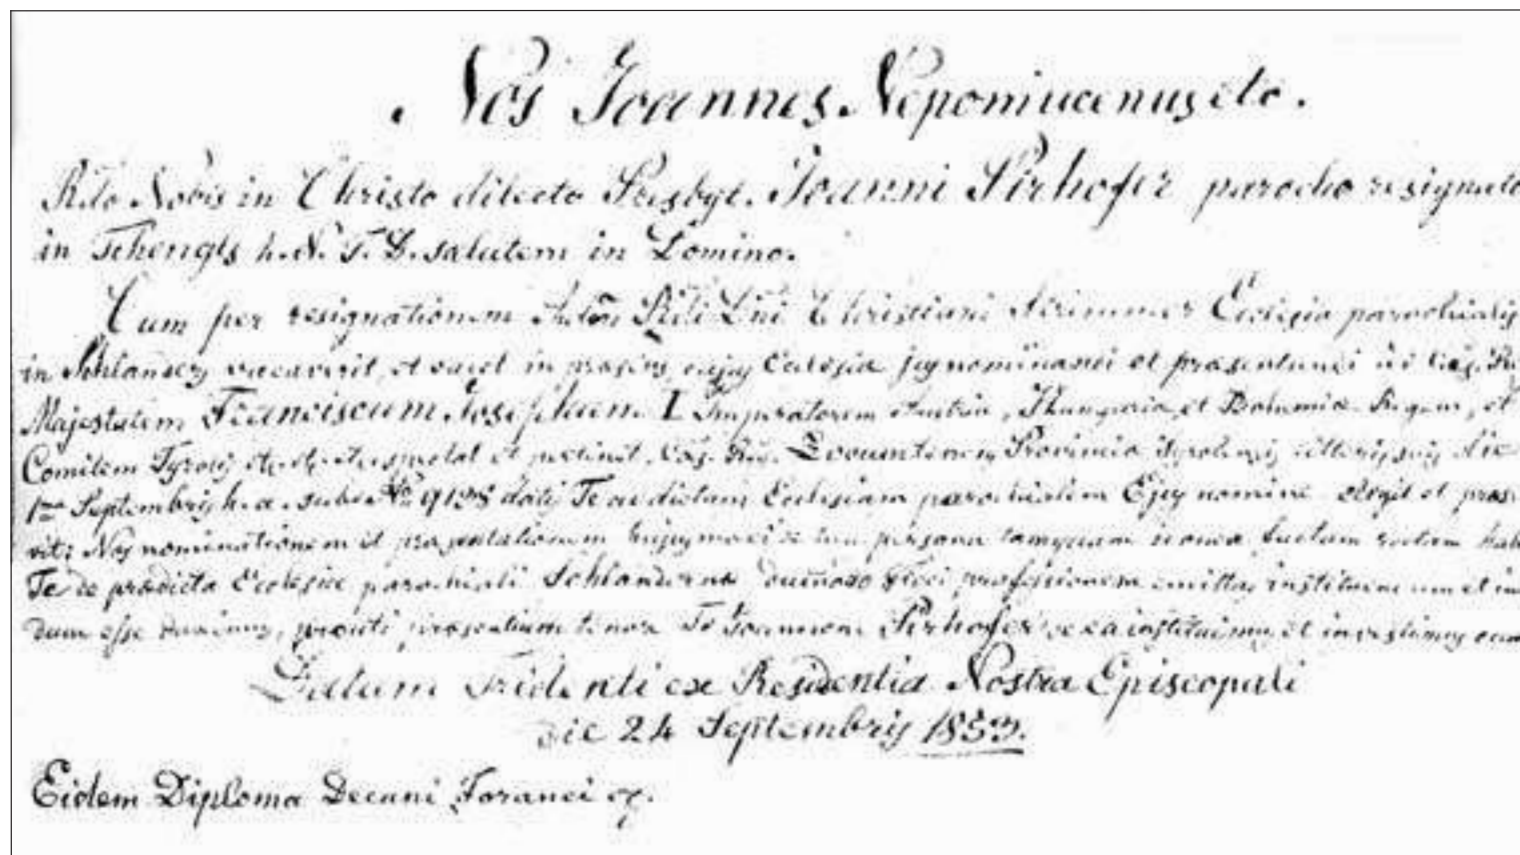 Nos Joannes Nepomucenus etc.
Rdo Nobis in Christo dilecto Presbyt. Joanni Pirhofer parocho resignato
in Tschengls h. N. T. D. salutem in Domino.
Cum per resignationem Christiani Ecclesia parochialis
in Schlanders vacaverit, et vacet in praesens, cujus Ecclesia jus nominandi et praesentandi ad Caes. Re
Majestatem Franciscum Josephum I Imperatorem Austria, Hungaria et Bohemia Regem, et
Comitem Tyrolis spectat et pertinet, Caes. Reg. Locumtenens Provincia Tyrolensis die
1ma Septembris h. a. sub No 9138 datis Te ad dictam Ecclesiam parochialem Ejus nomine elegit et praes
vit: Nos nominationem et praesentationem hujusmodi de tua persona tamquam idonea factam
Te de praedicta Ecclesia parochiali Schlandersna dummodo fidei professionem emittas, instituendum et in
dum esse duximus, prouti praesentium tenore Te Joannem Pirhofer de ea instituimus et investimus
Datum Tridenti ex Residentia Nostra Episcopali
die 24 Septembris 1853.
Eidem Diploma Decani Foranei